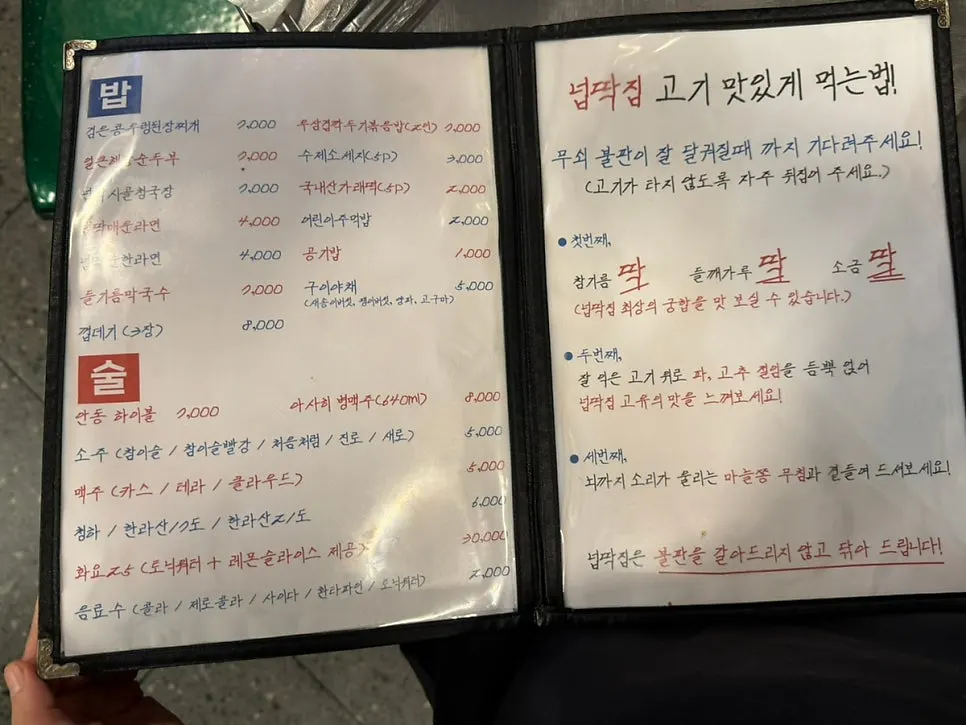 밥
검은콩 두럼된장찌개 7,000
얼큰 순두부 7,000
시골청국장 7,000
매운라면 4,000
순한라면 4,000
들기름막국수 7,000
껍데기 (3장) 8,000
우삼겹깍두기볶음밥(2인) 7,000
수제소세지(5p) 3,000
국내산가래떡(5p) 2,000
어린이주먹밥 2,000
공기밥 1,000
구이야채 5,000
(새송이버섯, 팽이버섯, 양파, 고구마)
술
안동 하이볼 7,000
아사히 병맥주(640ml) 8,000
소주 (참이슬 / 참이슬빨강 / 처음처럼 / 진로 / 새로) 5,000
맥주 (카스 / 테라 / 클라우드) 5,000
청하 / 한라산17도 / 한라산21도 6,000
화요25 (토닉워터 + 레몬슬라이스 제공) 30,000
음료수 (콜라 / 제로콜라 / 사이다 / 환타파인 / 토닉워터) 2,000
넙딱집 고기 맛있게 먹는법!
무쇠 불판이 잘 달궈질때 까지 기다려주세요!
(고기가 타지 않도록 자주 뒤집어 주세요.)
● 첫번째,
참기름 딱 들깨가루 딸 소금 딸
(넙딱집 최상의 궁합을 맛 보실 수 있습니다.)
● 두번째,
잘 익은 고기 위로 파, 고추 절임을 듬뿍 얹어
넙딱집 고유의 맛을 느껴보세요!
● 세번째,
뇌까지 소리가 울리는 마늘쫑 무침과 곁들여 드셔보세요!
넙딱집은 불판을 갈아드리지 않고 닦아 드립니다!